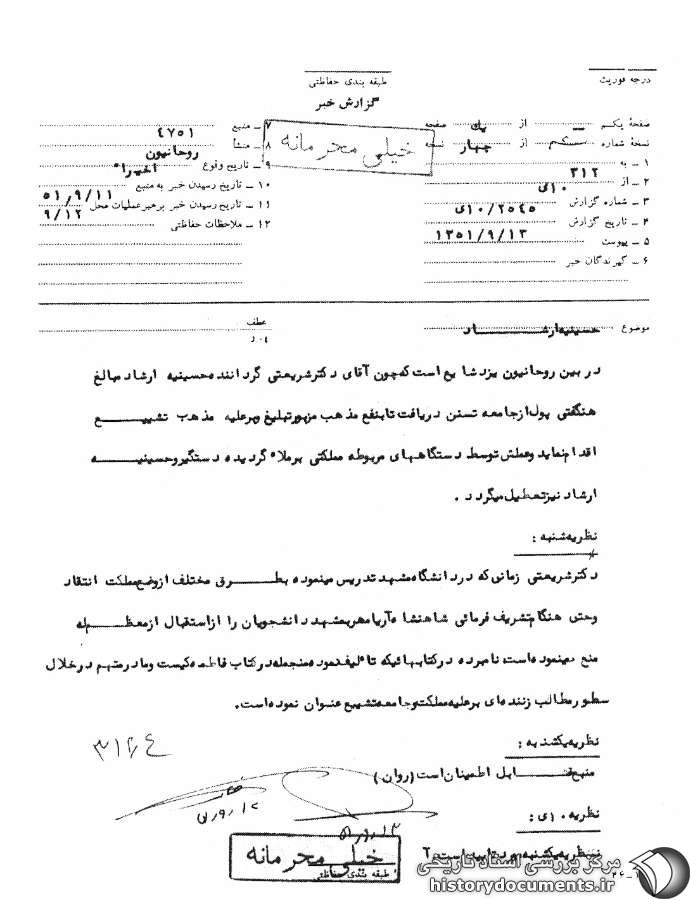 درجه فوریت
طبقه بندی حفاظتی
گزارش خبر
صفحهٔ یکم از یک صفحه
نسخهٔ شماره یکم از چهار نسخه
۱ ـ به ۳۱۲
۲ ـ از ۱۰ی
۳ ـ شماره گزارش ۱۰/۲۵۴۵ی
۴ ـ تاریخ گزارش ۱۳۵۱/۹/۱۳
۵ ـ پیوست
۶ ـ گیرندگان خبر
خیلی محرمانه
۷ ـ منبع ۴۷۵۱
۸ ـ منشأ روحانیون
۹ ـ تاریخ وقوع اخیراً
۱۰ ـ تاریخ رسیدن خبر به منبع ۵۱/۹/۱۱
۱۱ ـ تاریخ رسیدن خبر برهبر عملیات محل ۹/۱۲
۱۲ ـ ملاحظات حفاظتی
موضوع حسینیه ارشاد
عطف
در بین روحانیون یزد شایع است که چون آقای دکتر شریعتی گرداننده حسینیه ارشاد مبالغ
هنگفتی پول از جامعه تسنن دریافت تا بنفع مذهب مزبور تبلیغ و برعلیه مذهب تشییع
اقدام نماید و عملش توسط دستگاههای مربوطه مملکتی برملاء گردیده دستگیر و حسینیه
ارشاد نیز تعطیل میگردد .
نظریه شنبه :
دکتر شریعتی زمانی که در دانشگاه مشهد تدریس مینموده بطرق مختلف از وضع مملکت انتقاد
وحتی هنگام تشریف فرمائی شاهنشاه آریامهر بمشهد دانشجویان را از استقبال از معظم له
منع مینموده است نامبرده در کتابهائیکه تألیف نموده منجمله در کتاب فاطمه کیست و مادر متهم در خلال
سطور مطالب زننده ای برعلیه مملکت و جامعه تشییع عنوان نموده است .
نظریه یکشنبه :
منبع قابل اطمینان است (روان)
نظریه ۱۰ی :
نظریه یکشنبه مورد تأیید است
خیلی محرمانه
طبقه بندی حفاظتی
مرکز بررسی اسناد تاریخی
historydocuments.ir